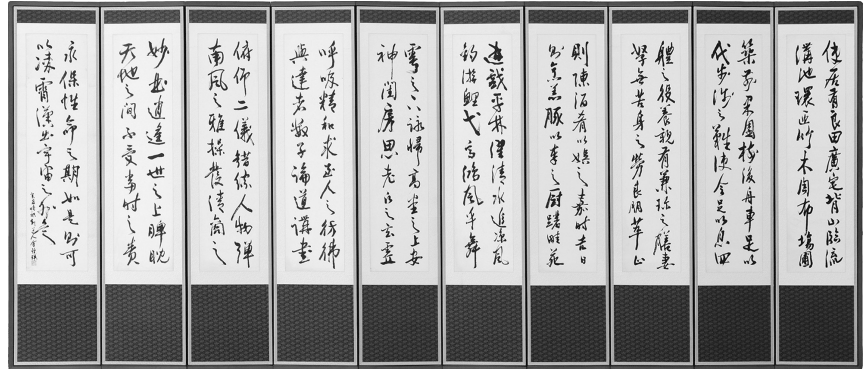 使居有良田廣宅背山臨流
溝池環匝竹木周布場圃
築前果園樹後舟車足以
代步涉之難使令足以息四
體之役養親有兼珍之膳妻
孥無苦身之勞良朋萃止
則陳酒肴以娛之嘉時吉日
則烹羔豚以奉之躇畦苑
遊戲平林濯清水追凉風
釣游鯉弋高鴻風乎舞
雩之下詠歸高堂之上安
神閨房思老氏之玄虛
呼吸精和求至人之彷彿
與達者數子論道講書
俯仰二儀錯綜人物彈
南風之雅操發清商之
妙曲逍遙一世之上睥睨
天地之間不受當時之責
永保性命之期如是則可
以凌霄漢出宇宙之外矣